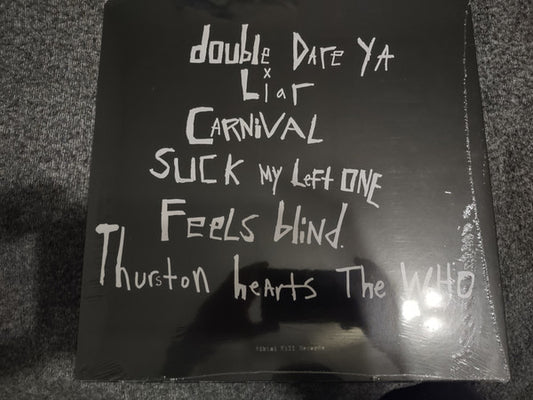 double DArE YA
LiAr
CARNiVAL
SUCK My Left ONE
FEELS blind.
Thurston heArts The WHO
Bikini Kill Records